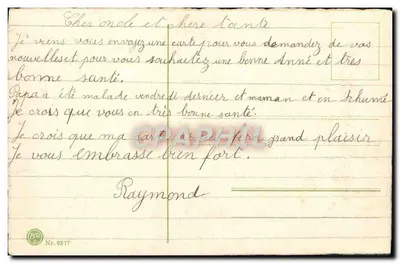 Cher oncle et chere tante
Je viens vous envoyez une carte pour vous demandez de vos
nouvelles et pour vous souhaitez une bonne anné et tres
bonne santé.
Papa a été malade vendredi dernier et maman et en rhumé
Je crois que vous en trés bonne santé.
Je crois que ma carte fera grand plaisir
Je vous embrasse bien fort.
Raymond
Nr. 9277